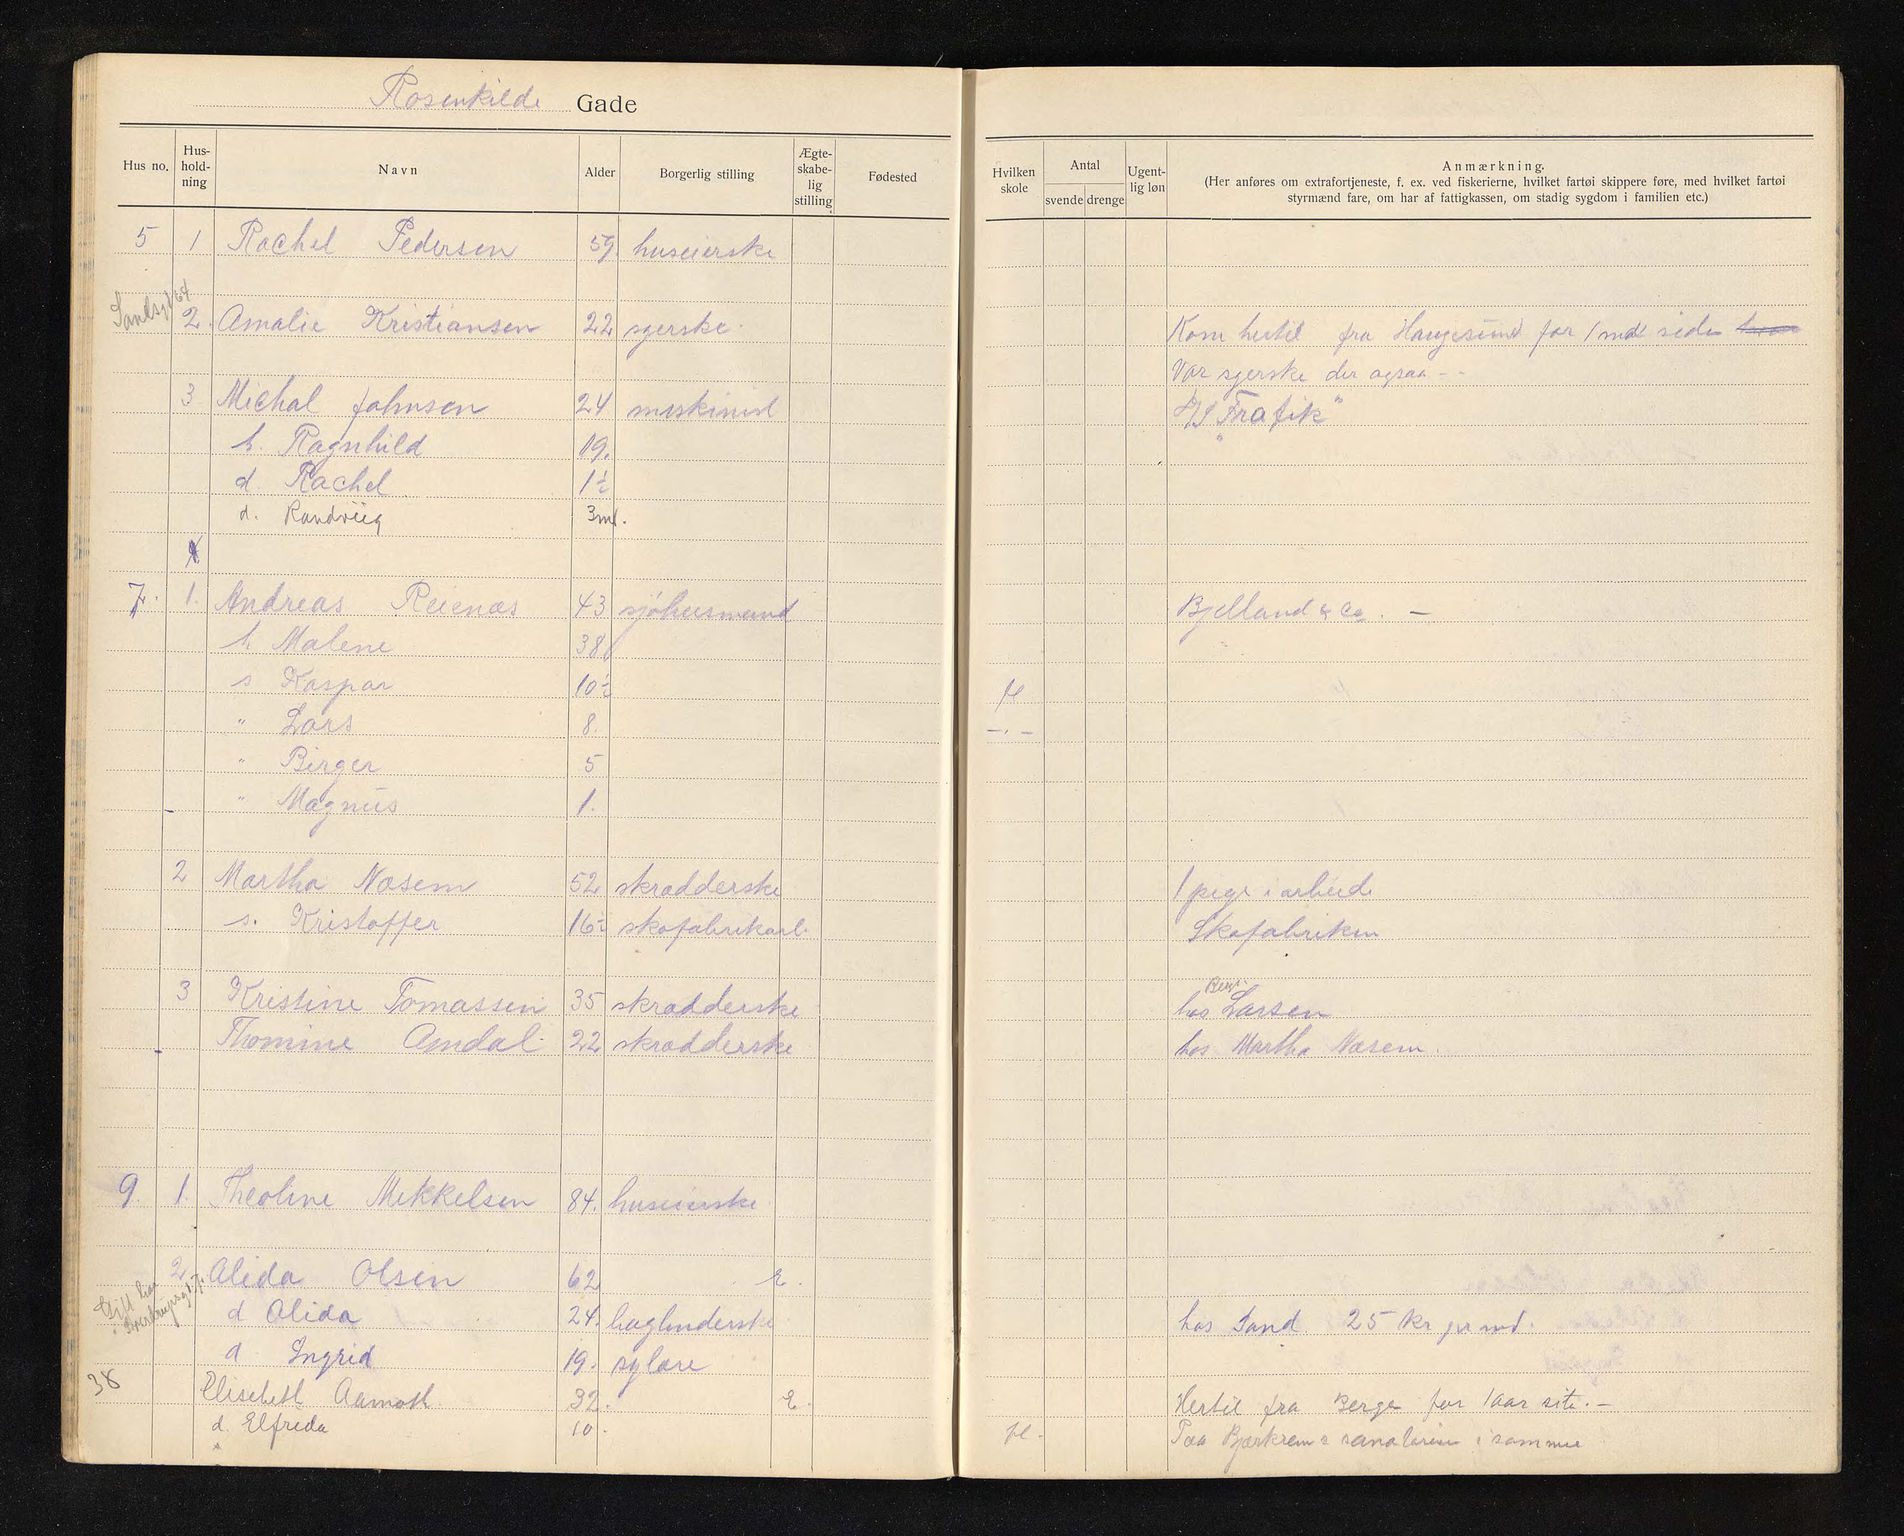 Rosenkilde Gade
Hus no. Hus-hold-ning Navn Alder Borgerlig stilling Ægte-skabe-lig stilling Fødested Hvilken skole Antal svende drenge Ugent-lig løn Anmærkning.
(Her anføres om extrafortjeneste, f. ex. ved fiskerierne, hvilket fartøi skippere føre, med hvilket fartøi
styrmænd fare, om har af fattigkassen, om stadig sygdom i familien etc.)
5 1 Rachel Pedersen 59. huseierske
64
2. Amalie Kristiansen 22 syerske. Kom hertil fra Haugesund for 1 md siden
Var syerske der ogsaa - -
3 Michal Johnsen 24 maskinist "Trafik"
h. Ragnhild 19.
d. Rachel 1½
d. Randviig 3md.
7. 1. Andreas Reienæs 43 sjøhusmand Bjelland & Co. —
h Malene 38
s Kaspar 10½ H
" Lars 8. -.-
" Birger 5
" Magnus 1.
2 Martha Næsem 52 skrædderske 1 pige i arbeide
s. Kristoffer 16½ skofabrikarb. Skofabriken
3 Kristine Tomassen 35 skrædderske hos Larsen
Thomine Amdal. 22 skrædderske hos Martha Næsem.
9. 1. Theoline Mikkelsen 84. huseierske
2. Alida Olsen 62 E.
d Alida 24. boghnderske hos Sand. 25 kr per md.
d Ingrid 19. sylære
38 Elisebeth Aamoth 32. E. Hertil fra Berge for 1 aar sit. —
d. Elfreda 10. H. Paa Bjerkrems sanatorium i sommer